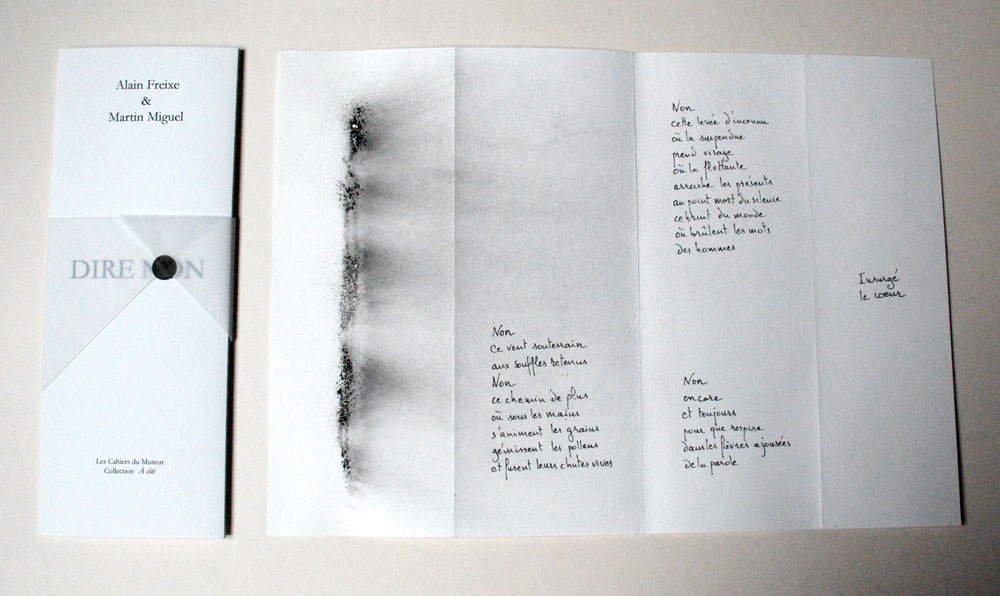 Alain Freixe
&
Martin Miguel
DIRE NON
Les Cahiers du Museur
Collection À côté
Non
ce vent souterrain
aux souffles retenus
Non
ce chemin de plus
où sous les mains
s'animent les grains
gémissent les pollens
et fusent leurs chutes vives
Non
cette levée d'inconnu
où la suspendue
prend visage
où la flottante
arrache les présents
au point mort du silence
ce bruit du monde
où brûlent les mots
des hommes
Non
encore
et toujours
pour que respire
dans les fièvres ajourées
de la parole
Insurgé
le cœur